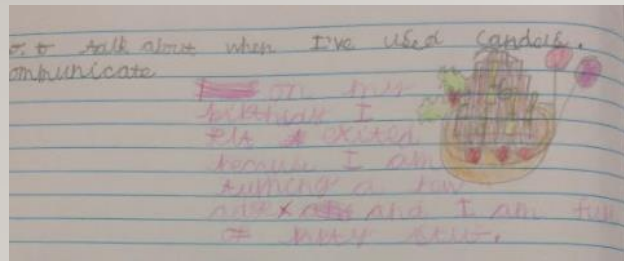 to talk about when I've used candels.
ommunicate
on my
birthday I
felt exited
because I am
turning a new
age and I am full
of